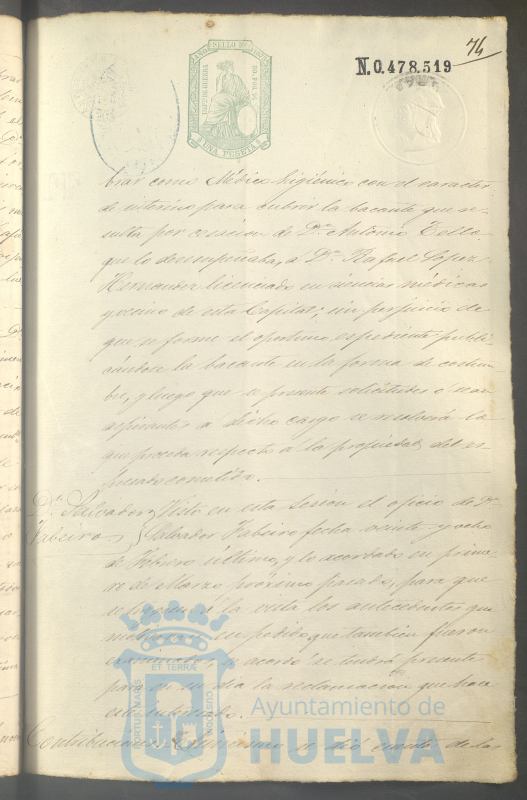 74
SELLO 10º
N.0.478.519
UNA PESETA
brar como Médico higiénico con el caracter
de interino para cubrir la bacante que re-
sulta por cesacion de Dn. Antonio
que lo desempeñaba, a Dn. Rafael Lopez
Hernandez licenciado en ciencias médicas
y vecino de esta Capital; sin perjuicio de
que se forme el oportuno expediente publi-
cándose la bacante en la forma de costum-
bre, y luego que se presenten solicitudes ó sean
aspirantes a dicho cargo se resolverá lo
que proceda respecto a la propiedad del es-
presado cometido.
Dn. Salvador
Fabeiro
Visto en esta Sesion el oficio de Dn.
Salvador Fabeiro fecha veinte y ocho
de Febrero último, y lo acordado en prime-
ro de Marzo próximo pasado, para que
se á la vista los antecedentes que
su pedido, que tambien fueron
examinados se acordó se tendrá presente
para en su dia la reclamacion que hace
este interesado.
Contribuciones
se dió cuenta de las
PORTUS MARIS
ET TERRÆ
CUSTODIA
Ayuntamiento de
HUELVA